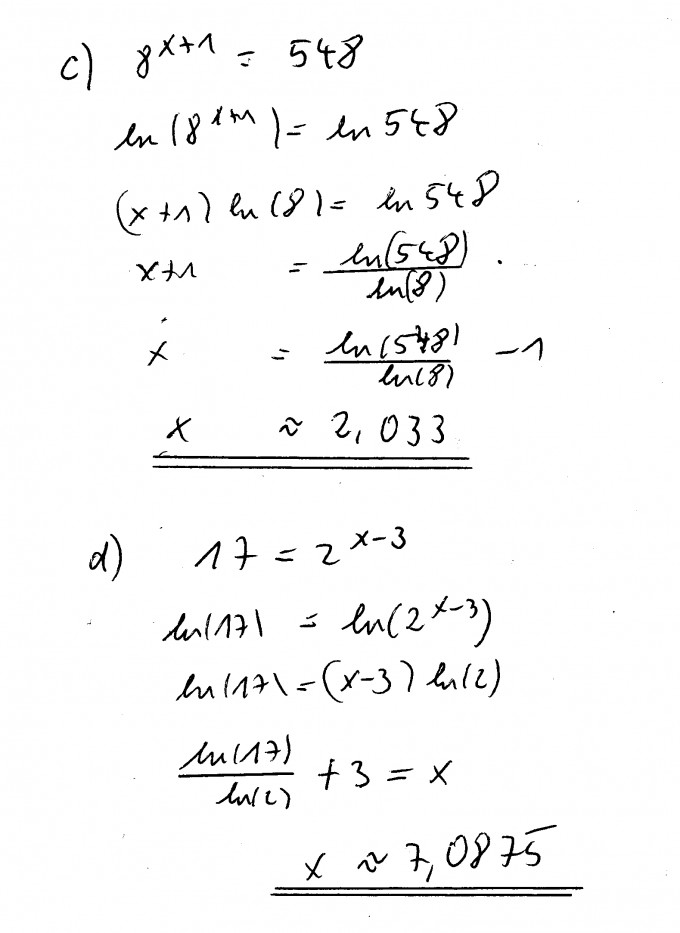 c) 8^{x+1} = 548
ln(8^{x+1}) = ln 548
(x+1) ln(8) = ln 548
x+1 = ln(548)/ln(8)
x = ln(548)/ln(8) -1
x ≈ 2,033
d) 17 = 2^{x-3}
ln(17) = ln(2^{x-3})
ln(17) = (x-3) ln(2)
ln(17)/ln(2) + 3 = x
x ≈ 7,0875